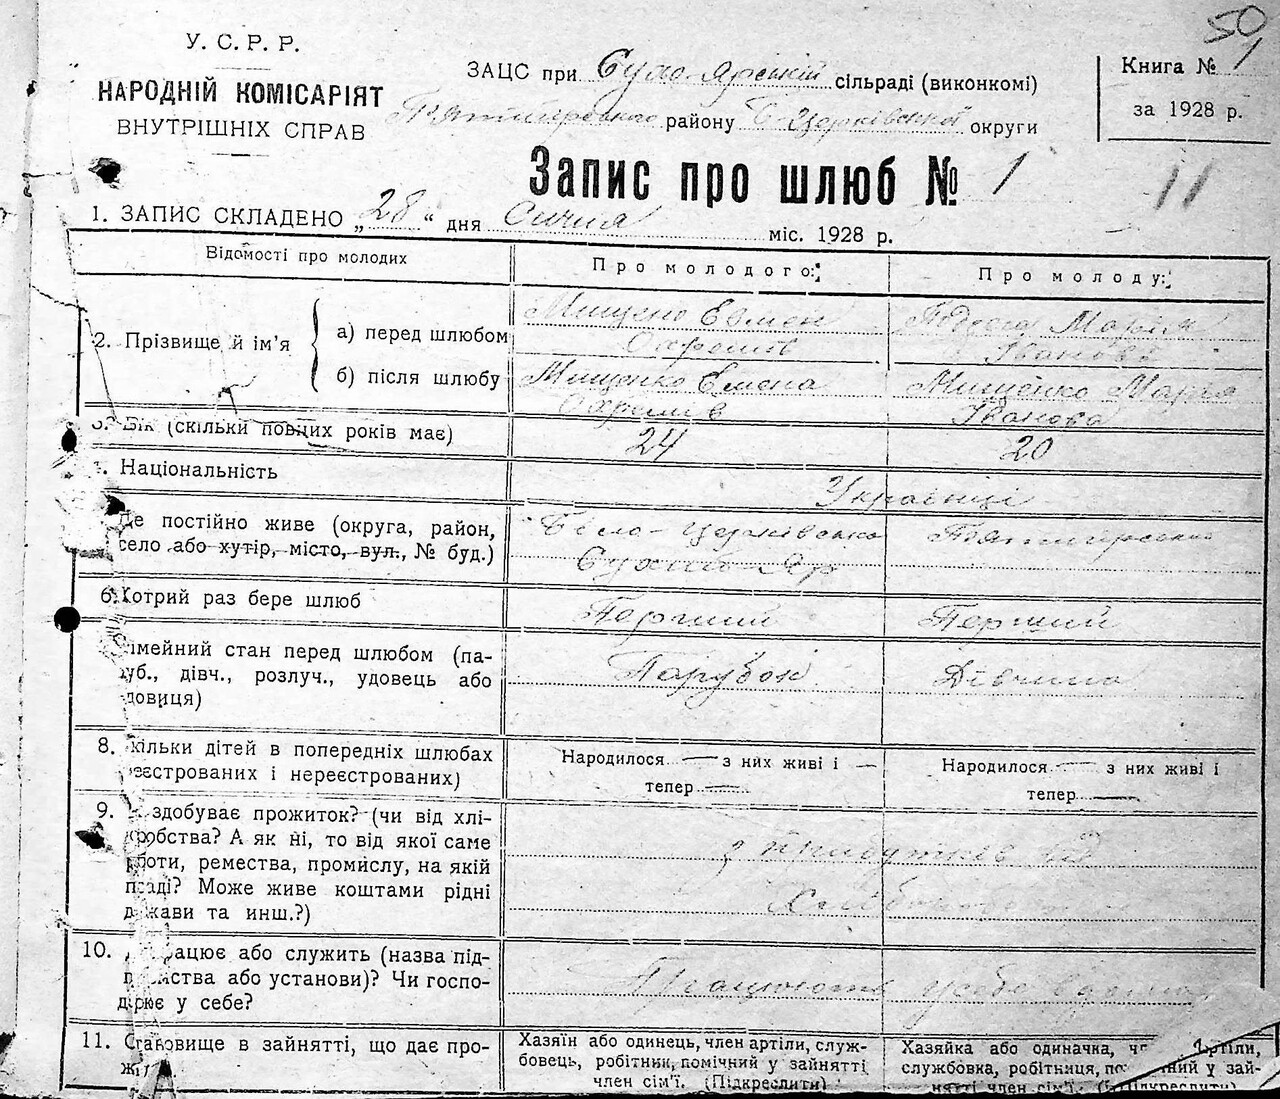 50
У. С. Р. Р.
НАРОДНІЙ КОМІСАРІЯТ
ВНУТРІШНІХ СПРАВ
ЗАЦС при Сухо-Ярській сільраді (виконкомі)
району Б-Церківської округи
Книга № 1
за 1928 р.
Запис про шлюб № 1
11
1. ЗАПИС СКЛАДЕНО „28“ дня Січня міс. 1928 р.
Відомості про молодих
Про молодого:
Про молоду:
2. Прізвище й ім’я
а) перед шлюбом
Евмен
Марія
Іванова
б) після шлюбу
Мищенко Емена
Мищенко Марія
Іванова
3. Вік (скільки повних років має)
24
20
4. Національність
Українці
Де постійно живе (округа, район,
село або хутір, місто, вул., № буд.)
Біло-Церківська
Сухий Яр
6. Котрий раз бере шлюб
Перший
Перший
імейний стан перед шлюбом (па-
уб., дівч., розлуч., удовець або
довиця)
Парубок
Дівчина
8. кільки дітей в попередніх шлюбах
еєстрованих і нереєстрованих)
Народилося — з них живі і —
тепер —
Народилося — з них живі і
тепер —
9. здобуває прожиток? (чи від хлі-
оробства? А як ні, то від якої саме
роботи, ремества, промислу, на якій
посаді? Може живе коштами рідні
держави та инш.?)
з прибутків від
10. рацює або служить (назва під-
приємства або установи)? Чи госпо-
дарює у себе?
Працюють у себе вдома
11. Становище в зайнятті, що дає про-
житок
Хазяїн або одинець, член артілі, служ-
бовець, робітник, помічний у зайнятті
член сім’ї. (Підкреслити)
Хазяйка або одиначка, член артіли,
службовка, робітниця, помічний у зай-
нятті член сім’ї. (Підкреслити)